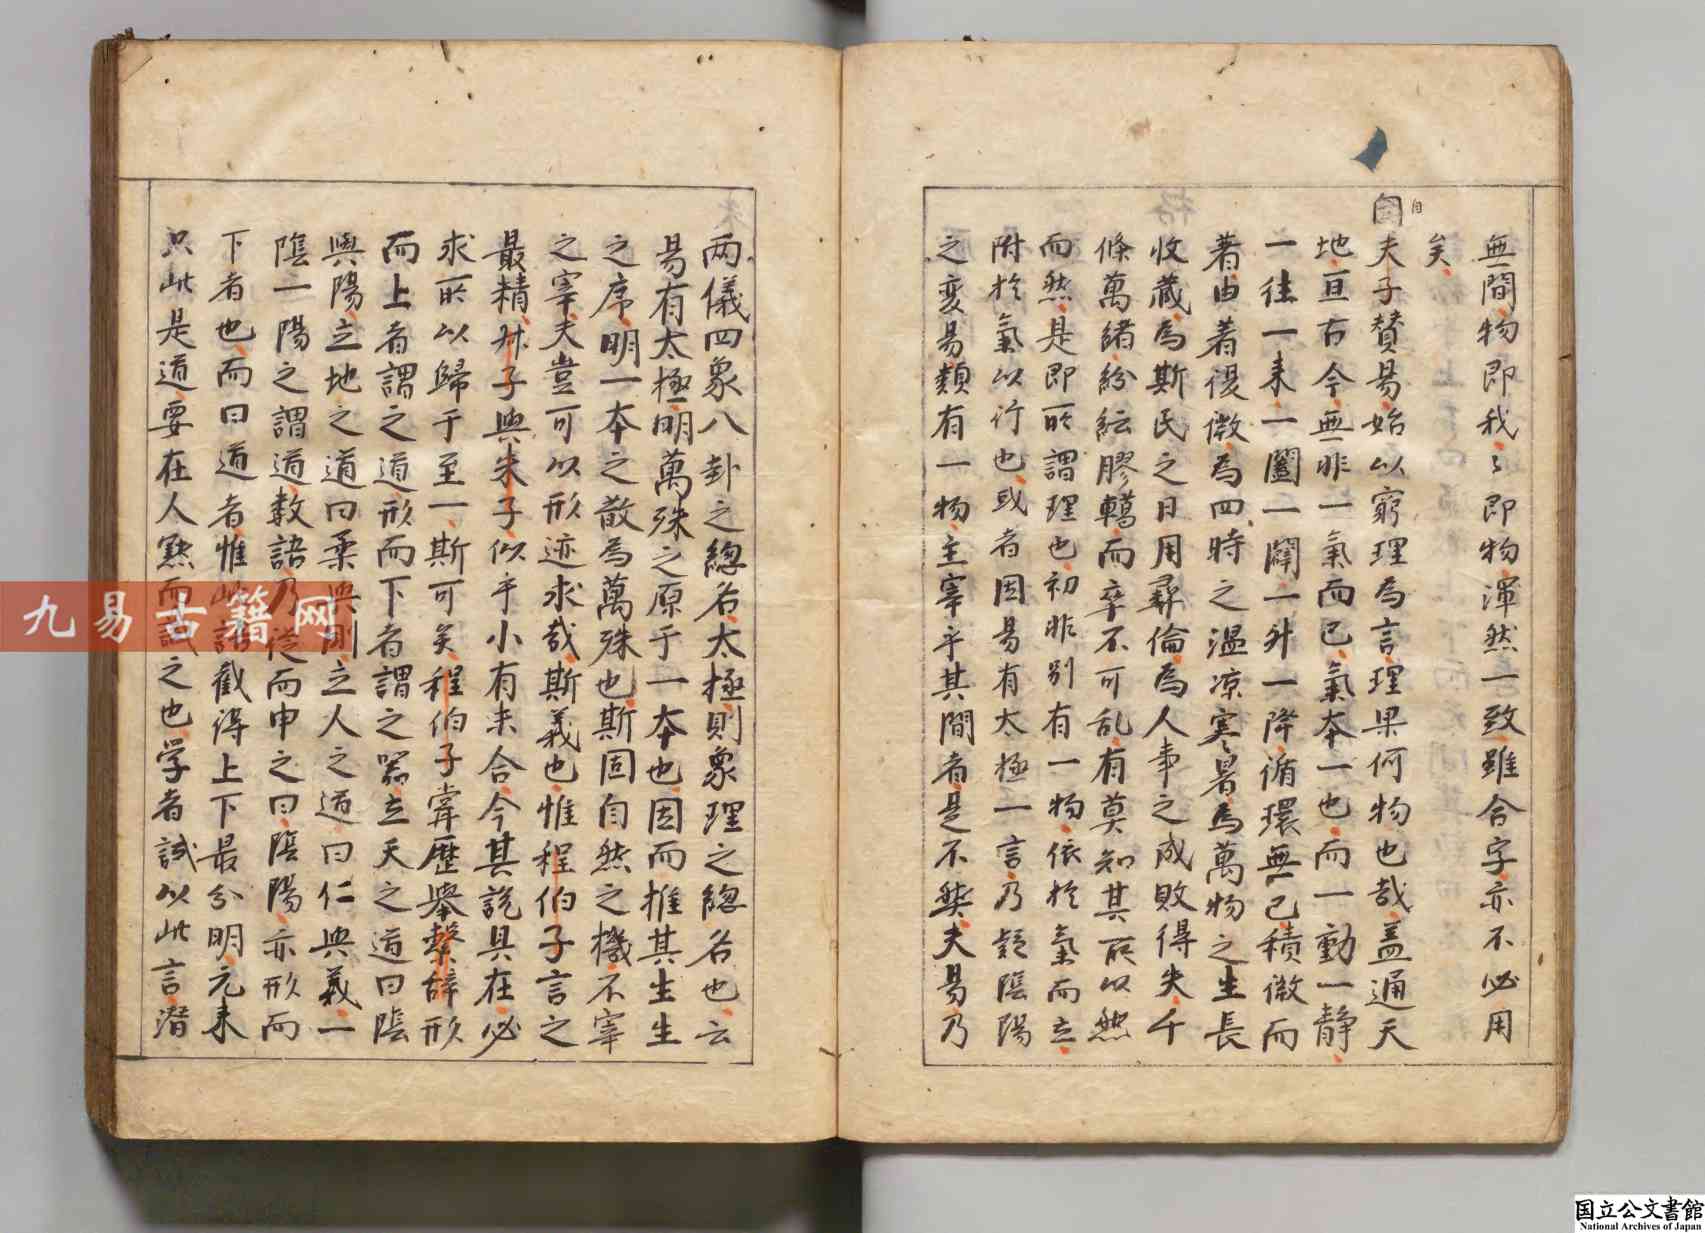 無間物即我〻即物渾然一致雖合字亦不必用
矣
自夫子賛易始以窮理為言理果何物也哉盖通天
地亘古今無非一氣而已氣本一也而一動一静
一往一来一闔一闢一升一降循環無已積微而
著由著復微為四時之温凉寒暑為萬物之生長
收蔵為斯民之日用彞倫為人事之成敗得失千
條萬緒紛紜膠轕而卒不可乱有莫知其所以然
而然是即所謂理也初非別有一物依於氣而立
附於氣以行也或者因易有太極一言乃疑陰陽
之変易類有一物主宰乎其間者是不然夫易乃
两儀四象八卦之総名太極則象理之総名也云
易有太極明萬殊之原于一本也因而推其生生
之序明一本之散為萬殊也斯固自然之機不宰
之宰夫豈可以形迹求哉斯義也惟程伯子言之
最精叔子與朱子似乎小有未合今其説具在必
求所以歸于至一斯可矣程伯子甞歴舉繫辞形
而上者謂之道形而下者謂之器立天之道曰陰
與陽立地之道曰柔與剛立人之道曰仁與義一
陰一陽之謂道数語乃従而申之曰陰陽亦形而
下者也而曰道者惟此語截得上下最分明元来
只此是道要在人黙而識之也学者試以此言潜
九易古籍网
国立公文書館
National Archives of Japan